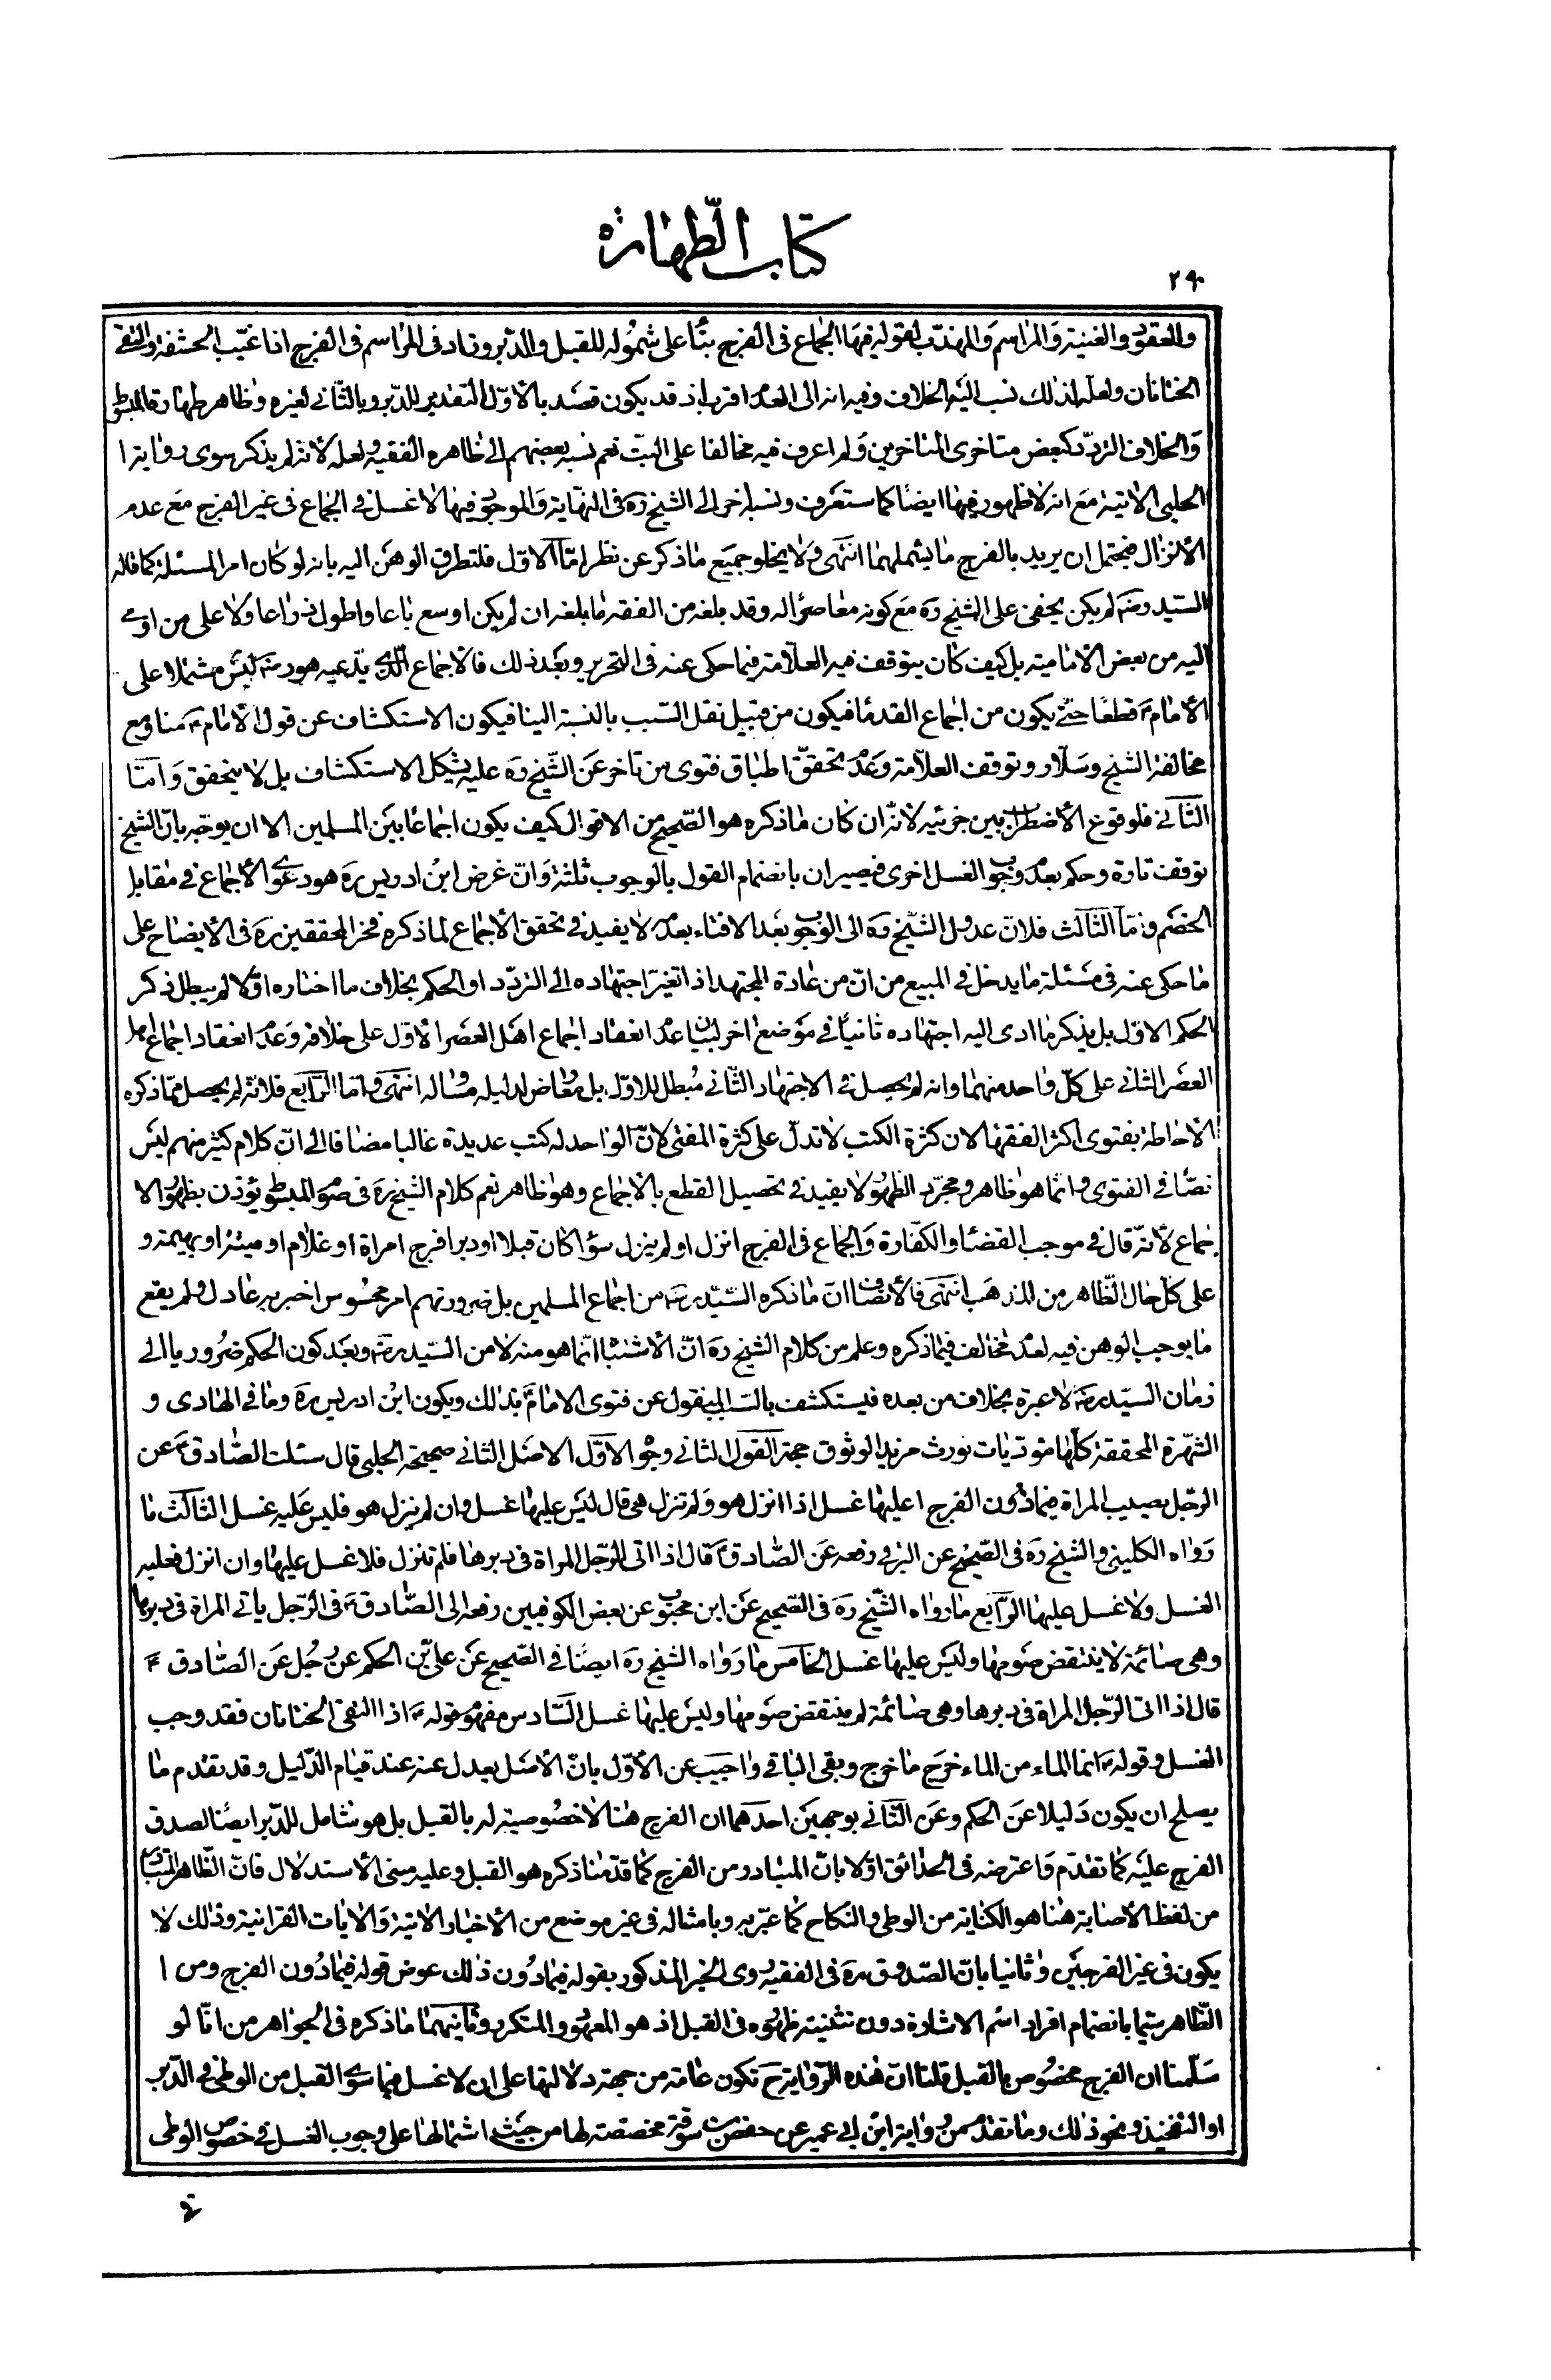 كتاب الطهارة
٢٩٠
والعقود والغنية والمراسم والمهذب لقوله فيها الجماع فى الفرج بناء على شموله للقبل والدبر وزاد فى المراسم فى الفرج اذا غيب الحشفة والتقى
الختانان ولعله لذلك نسب اليه الخلاف وفيه انه الى العدم اقرب اذ قد يكون قصد بالاول التقدير للدبر وبالثانى لغيره وظاهر طهارة المبسوط
والخلاف التردد كبعض متاخرى المتاخرين ولم اعرف فيه مخالفا على البت نعم نسبه بعضهم الى ظاهر الفقيه ولعله لانه لم يذكر سوى رواية
الحلبى الاتية مع انه لا ظهور فيها ايضا كما ستعرف ونسبه اخر الى الشيخ ره فى النهاية والموجود فيها لا غسل فى الجماع فى غير الفرج مع عدم
الانزال فيحتمل ان يريد بالفرج ما يشملهما انتهى ولا يخلو جميع ما ذكر عن نظر امّا الاول فلتطرق الوهن اليه بانه لو كان امر المسئلة كما قاله
السيد رضه لم يكن يخفى على الشيخ ره مع كونه معاصرا له وقد بلغه من الفقه ما بلغه ان لم يكن اوسع باعا واطول ذراعا ولا على من اوى
اليه من بعض الامامية بل كيف كان يتوقف فيه العلامة فيما حكى عنه فى التحرير وبعد ذلك فالاجماع الذى يدعيه هو رضه ليس مشتملا على
الامام ع قطعا حتى يكون من اجماع القدماء فيكون من قبيل نقل السبب بالنسبة الينا فيكون الاستكشاف عن قول الامام ع منا ومع
مخالفة الشيخ وسلار وتوقف العلامة وعدم تحقق اطباق فتوى من تاخر عن الشيخ ره عليه يشكل الاستكشاف بل لا يتحقق وامّا
الثانى فلوقوع الاضطراب بين جزئيه لانه ان كان ما ذكره هو الصحيح من الاقوال كيف يكون اجماعا بين المسلمين الا ان يوجه بان الشيخ
توقف تارة وحكم بعدم وجوب الغسل اخرى فيصير ان بانضمام القول بالوجوب ثلثة وان غرض ابن ادريس ره هو دعوى الاجماع فى مقابل
الخصم وامّا الثالث فلان عدول الشيخ ره الى الوجوب بعد الافتاء بعدمه لا يفيد فى تحقق الاجماع لما ذكره فخر المحققين ره فى الايضاح على
ما حكى عنه فى مسئلة ما يدخل فى المبيع من ان من عادة المجتهد اذا تغير اجتهاده الى التردد او الحكم بخلاف ما اختاره اولا لم يبطل ذكر
الحكم الاول بل يذكر ما ادى اليه اجتهاده ثانيا فى موضع اخر لبيان عدم انعقاد اجماع اهل العصر الاول على خلافه وعدم انعقاد اجماع اهل
العصر الثانى على كل واحد منهما وانه لم يحصل فى الاجتهاد الثانى مبطل للاول بل معارض لدليله مساو له انتهى وامّا الرابع فلانه لم يحصل مما ذكره
الاحاطة بفتوى اكثر الفقهاء لان كثرة الكتب لا تدل على كثرة المفتى لان الواحد له كتب عديدة غالبا مضافا الى ان كلام كثير منهم ليس
نصا فى الفتوى وانما هو ظاهر ومجرد الظهور لا يفيد فى تحصيل القطع بالاجماع وهو ظاهر نعم كلام الشيخ ره فى صوم المبسوط يؤذن بظهور الا
جماع لانه قال فى موجب القضاء والكفارة والجماع فى الفرج انزل او لم ينزل سواء كان قبلا او دبرا فرج امراة او غلام او ميتة او بهيمة و
على كل حال الظاهر من المذهب انتهى فالانصاف ان ما ذكره السيد رضه من اجماع المسلمين بل ضرورتهم امر محسوس اخبر به عادل ولم يقع
ما يوجب الوهن فيه لعدم مخالف فيما ذكره وعلم من كلام الشيخ ره ان الاشتباه انما هو منه لا من السيد رضه وبعد كون الحكم ضروريا الى
زمان السيد رضه لا عبرة بخلاف من بعده فيستكشف بالسبب المنقول عن فتوى الامام ع بذلك ويكون ابن ادريس ره وما فى الهادى و
الشهرة المحققة كلها مؤديات تورث مزيد الوثوق حجة القول الثانى وجوه الاول الاصل الثانى صحيحة الحلبى قال سئلت الصادق ع عن
الرجل يصيب المراة فيما دون الفرج اعليها غسل اذا انزل هو ولم تنزل هى قال ليس عليها غسل وان لم ينزل هو فليس عليه غسل الثالث ما
رواه الكلينى والشيخ ره فى الصحيح عن البرقى رفعه عن الصادق ع قال اذا اتى الرجل المراة فى دبرها فلم تنزل فلا غسل عليهما وان انزل فعليه
الغسل ولا غسل عليها الرابع ما رواه الشيخ ره فى الصحيح عن ابن محبوب عن بعض الكوفيين رفعه الى الصادق ع فى الرجل ياتى المراة فى دبرها
وهى صائمة لا ينتقض صومها وليس عليها غسل الخامس ما رواه الشيخ ره ايضا فى الصحيح عن على بن الحكم عن رجل عن الصادق ع
قال اذا اتى الرجل المراة فى دبرها وهى صائمة لم ينتقض صومها وليس عليها غسل السادس مفهوم قوله ع اذا التقى الختانان فقد وجب
الغسل وقوله ع انما الماء من الماء خرج ما خرج وبقى الباقى واجيب عن الاول بان الاصل يعدل عنه عند قيام الدليل وقد تقدم ما
يصلح ان يكون دليلا عن الحكم وعن الثانى بوجهين احدهما ان الفرج هنا لا خصوصية له بالقبل بل هو شامل للدبر ايضا لصدق
الفرج عليه كما تقدم واعترضه فى الحدائق اولا بان المتبادر من الفرج كما قدمنا ذكره هو القبل وعليه مبنى الاستدلال فان الظاهر المتبادر
من لفظ الاصابة هنا هو الكناية من الوطى والنكاح كما عبر به وبامثاله فى غير موضع من الاخبار الاتية والايات القرانية وذلك لا
يكون فى غير الفرجين وثانيا بان الصدوق ره فى الفقيه روى الخبر المذكور بقوله فيما دون ذلك عوض قوله فيما دون الفرج ومن ا
لظاهر سيما بانضمام افراد اسم الاشارة دون تثنيته ظهوره فى القبل اذ هو المعهود والمتكرر وثانيهما ما ذكره فى الجواهر من انا لو
سلمنا ان الفرج مخصوص بالقبل قلنا ان هذه الرواية ح تكون عامة من جهة دلالتها على ان لا غسل فيما سوى القبل من الوطى فى الدبر
او التفخيذ ونحو ذلك وما تقدم من رواية ابن ابى عمير عن حفص بن سوقة مخصصة لها من حيث اشتمالها على وجوب الغسل فى خصوص الوطى